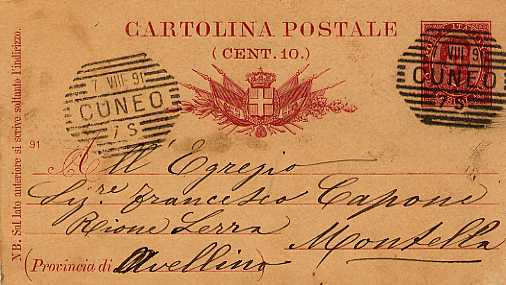 CARTOLINA POSTALE
(CENT. 10.)
7 VIII-91
CUNEO
7S
VIII-91
CUNEO
7S
NB. Sul lato anteriore si scrive soltanto l'indirizzo.
91
All' Egregio
Sigre. Francesco Capone
Rione Serra
Montella
(Provincia di Avellino)